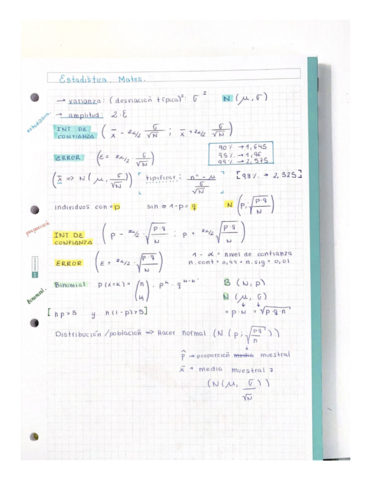 Estadística. Mates.
→ varianza: (desviación típica)² σ² N(μ, σ)
→ amplitud 2·E
INT DE CONFIANZA ( x̄ - zα/2 · σ/√N ; x̄ + zα/2 · σ/√N )
90% → 1,645
95% → 1,96
99% → 2,575
ERROR (E = zα/2 · σ/√N)
(x̄ ⇒ N(μ, σ/√N) tipificar: [98% → 2,325]
individuos con = p sin = 1-p = q N(p, √p·q/N)
proporción
INT DE CONFIANZA ( p - zα/2 · √p·q/N ; p + zα/2 · √p·q/N )
ERROR (E = zα/2 · √p·q/N)
1 - α = nivel de confianza
n.conf = 0,99 → n.sig = 0,01
Binomial
Binomial: p(x=k) = (n k) · pᵏ · qⁿ⁻ᵏ B(N, p)
N(μ, σ)
[np>5 y n(1-p)>5] = p·N = √p·q·n
Distribución/población ⇒ Hacer normal (N(p; √pq/n))
p̂ → proporción muestral
x̄ → media muestral
(N(μ, σ/√N))